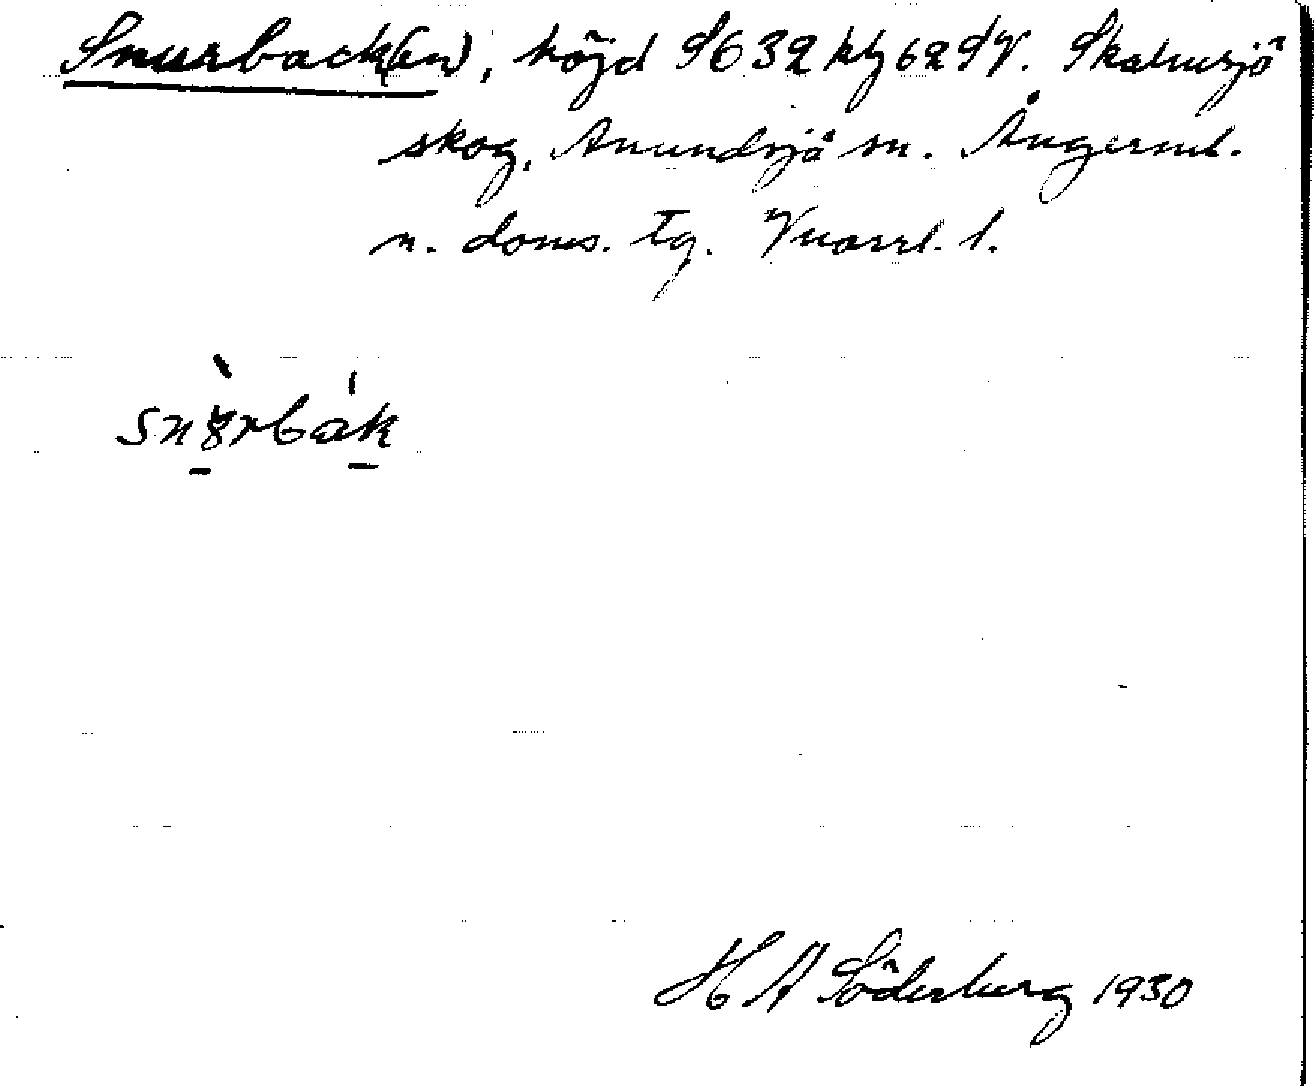 Snurback(en), höjd S632 hlg 62 SV. Skalmsjö
skog, Anundsjö sn. Ångerml.
n. doms. tg. Vnorrl. l.
snurbak
H A Söderberg 1930